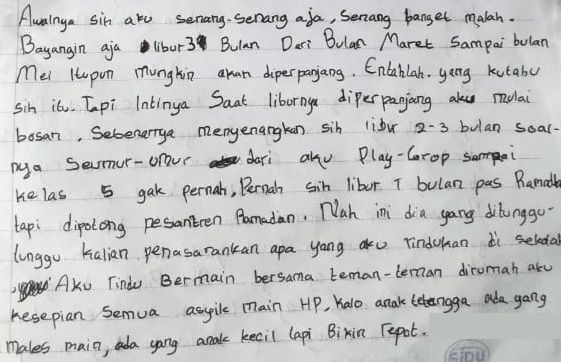 Awalnya sih aku senang-senang aja, senang banget malah.
Bayangin aja libur 3 Bulan Dari Bulan Maret sampai bulan
Mei itupun mungkin akan diperpanjang. Entahlah. yang kutahu
sih itu. Tapi Intinya Saat liburnya diperpanjang aku mulai
bosan. Sebenarnya menyenangkan sih libur 2-3 bulan soal-
nya Seumur-umur dari aku Play-Grop sampai
kelas 5 gak pernah, Pernah sih libur 1 bulan pas Ramadh
tapi dipotong pesantren Ramadan. Nah ini dia yang ditunggu-
tunggu kalian penasarankan apa yang aku rindukan di sekolah
Aku rindu Bermain bersama teman-teman dirumah aku
kesepian Semua asyik main HP, kalo anak tetangga ada yang
males main, ada yang anak kecil tapi Bikin repot.
SIDU